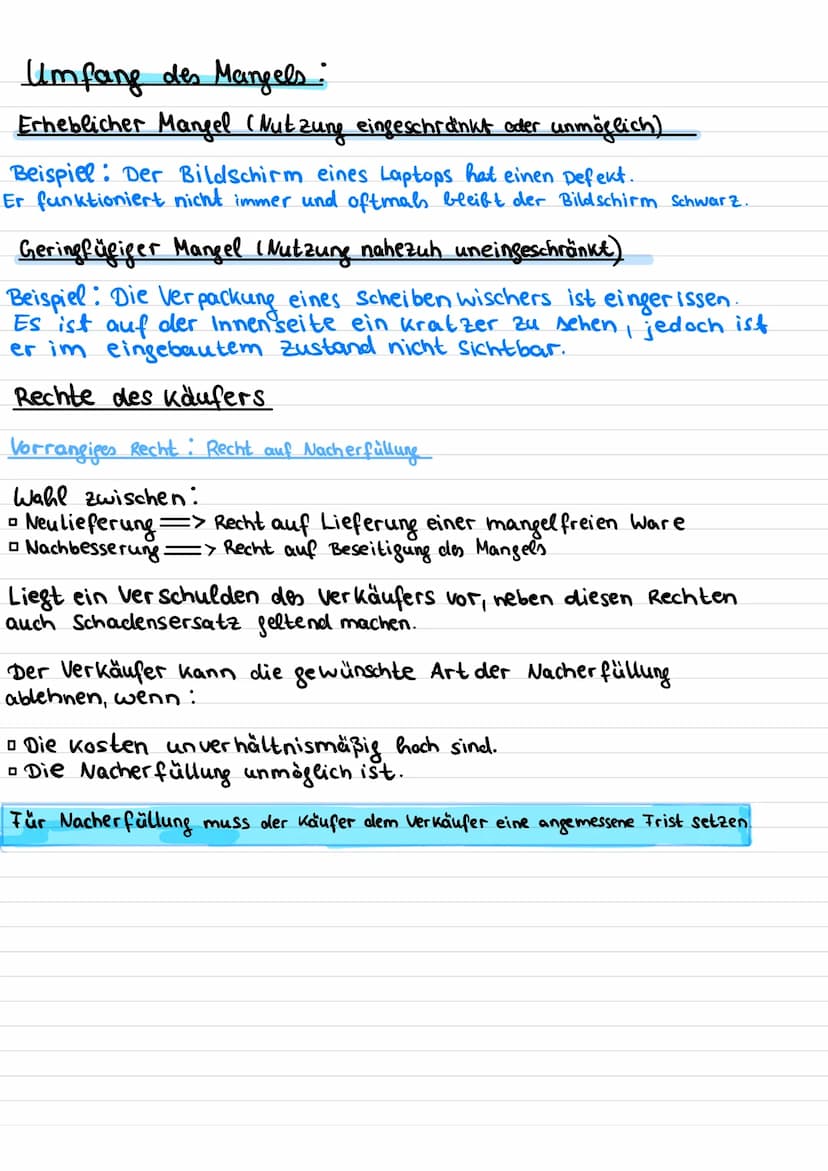 Umfang des Mangels:
Erheblicher Mangel (Nutzung eingeschränkt oder unmöglich)
Beispiel: Der Bildschirm eines Laptops hat einen Defekt.
Er funktioniert nicht immer und oftmals bleibt der Bildschirm schwarz.
Geringfügiger Mangel (Nutzung nahezuh uneingeschränkt)
Beispiel: Die Verpackung eines Scheibenwischers ist eingerissen.
Es ist auf der Innenseite ein Kratzer zu sehen, jedoch ist
er im eingebautem Zustand nicht sichtbar.
Rechte des Käufers
Vorrangiges Recht: Recht auf Nacherfüllung
Wahl zwischen:
▫ Neulieferung => Recht auf Lieferung einer mangelfreien Ware
▫ Nachbesserung => Recht auf Beseitigung des Mangels
Liegt ein Verschulden des Verkäufers vor, neben diesen Rechten
auch Schadensersatz geltend machen.
Der Verkäufer kann die gewünschte Art der Nacherfüllung
ablehnen, wenn:
▫ Die Kosten unverhältnismäßig hoch sind.
▫ Die Nacherfüllung unmöglich ist.
Für Nacherfüllung muss der Käufer dem Verkäufer eine angemessene Frist setzen